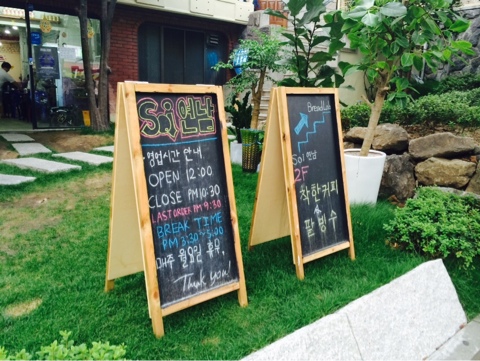 SOi 연남
영업시간 안내
OPEN 12:00
CLOSE PM 10:30
LAST ORDER PM 9:30
BREAK TIME
PM 3:30~5:00
매주 월요일 휴무,
Thank you
Soi 연남
2F
착한커피
팥빙수